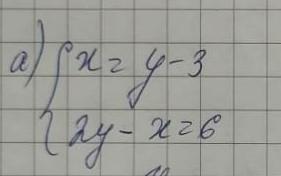 а) { x = y - 3
2y - x = 6